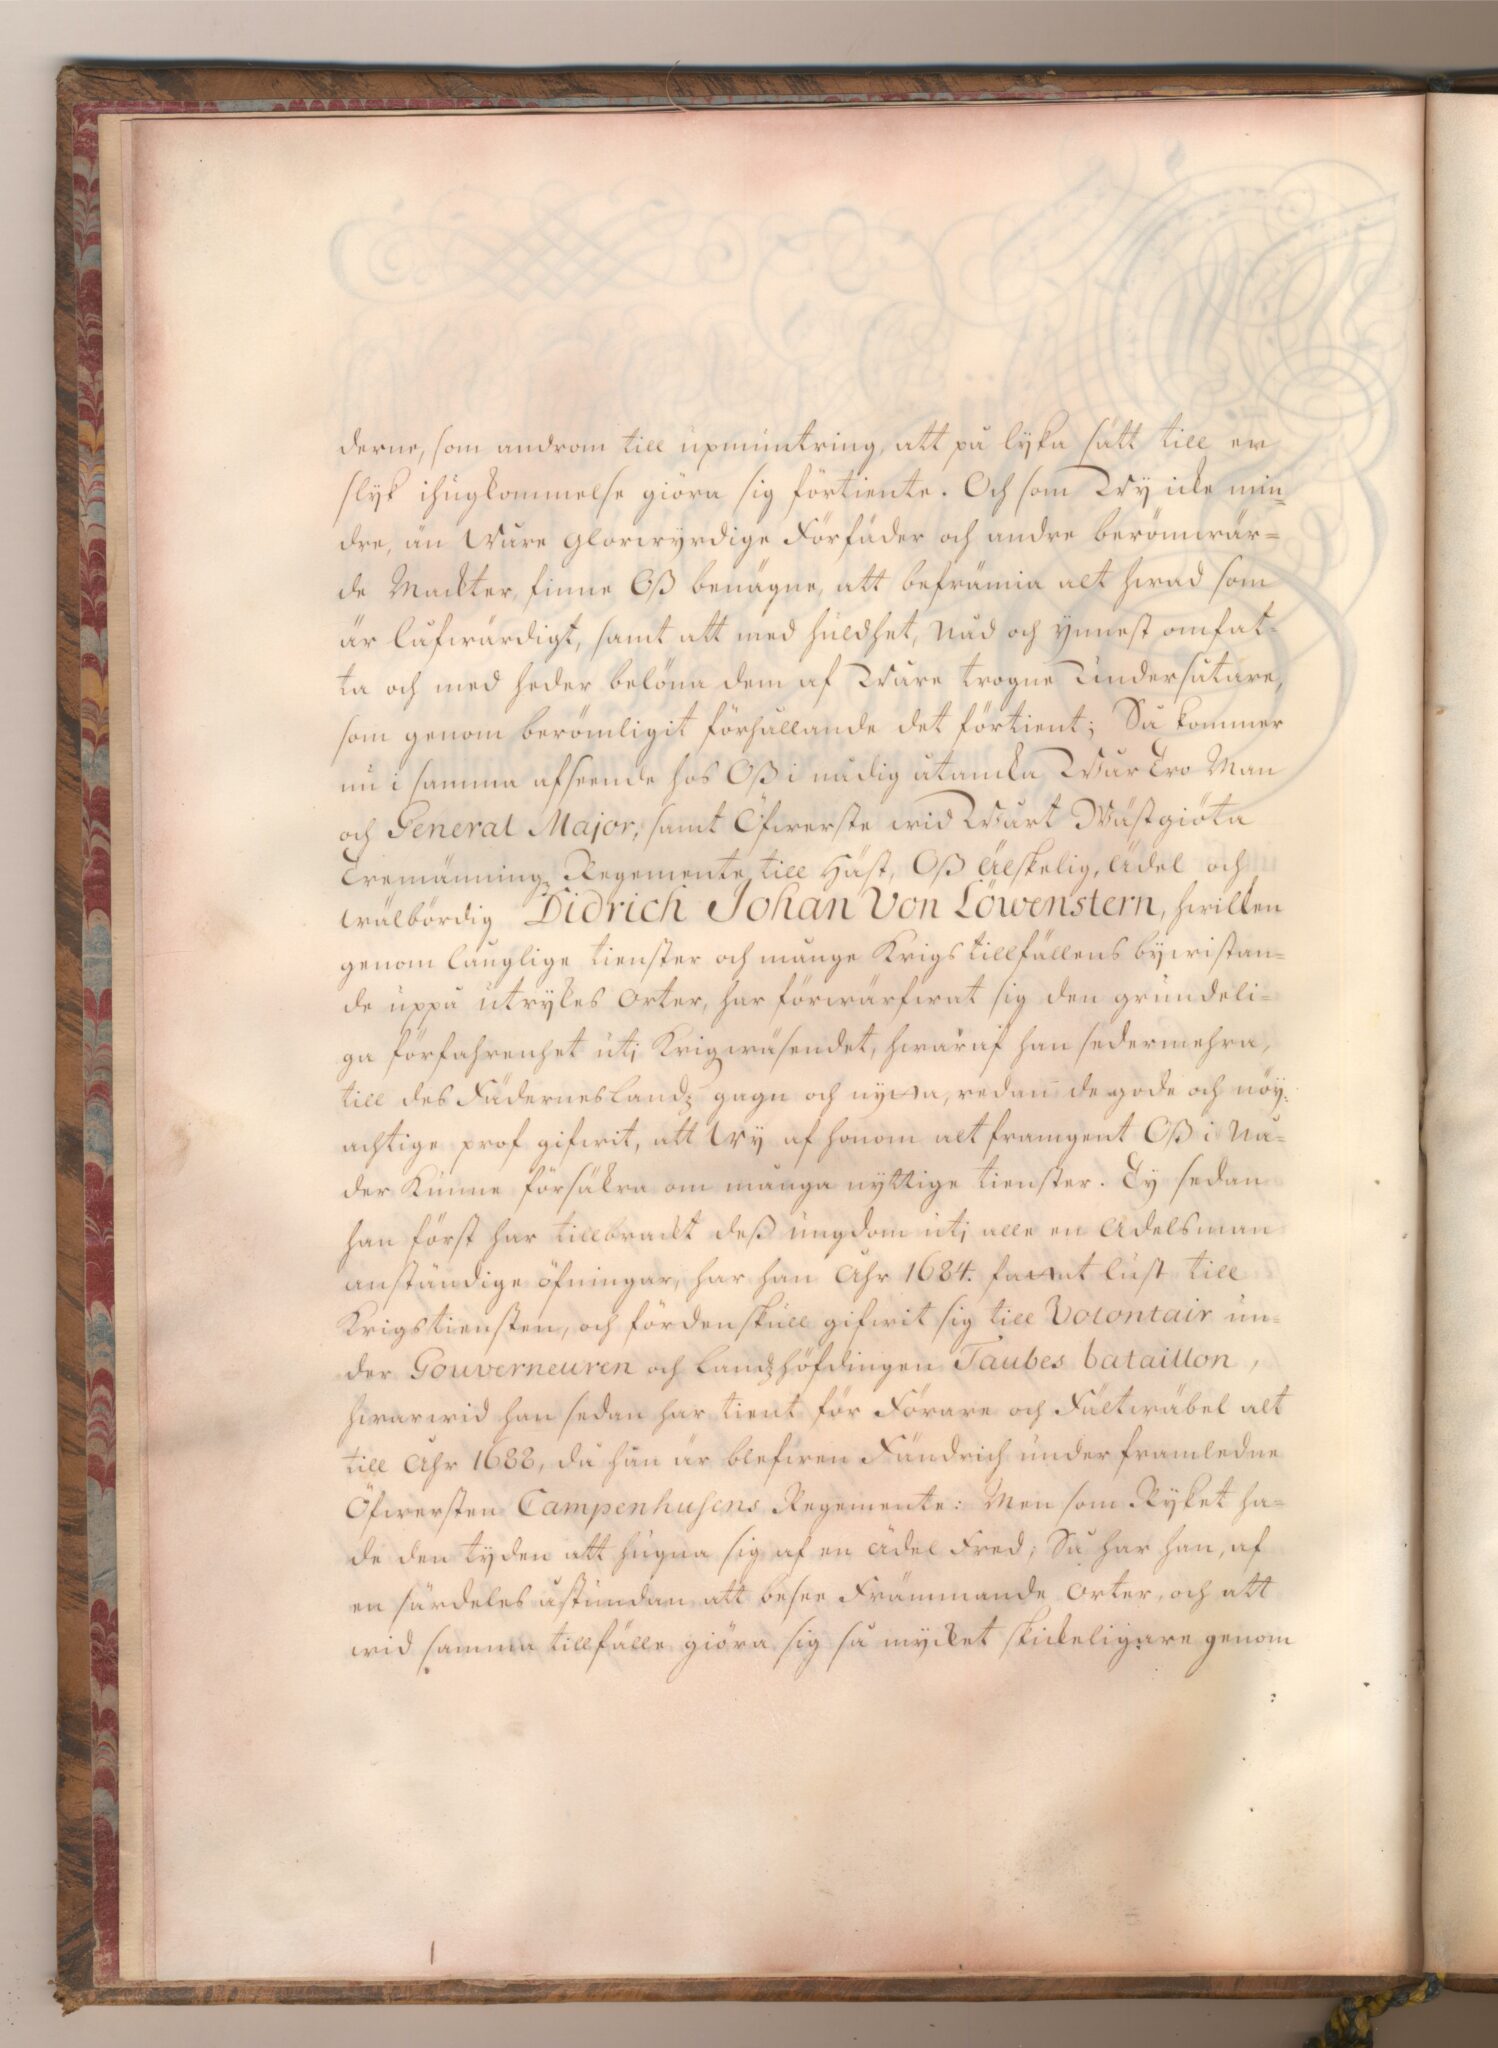 derne, som androm till upmuntring, att på lyka sätt till en
slyk ihugkommelse giöra sig förtiente. Och som Wy icke min-
dre, än Wåre Glorwyrdige Förfäder och andre berömwär-
de Mackter, finne Oß benägne, att befrämia alt hwad som
är lufwärdigt, samt att med huldhet, Nåd och ynnest omfat-
ta och med heder belöna dem af Wåre trogne Undersåtare,
som genom berömligit förhållande det förtient; Så kommer
nu i samma afseende hos Oß i nådig åtancka Wår Tro Man
och General Major, samt Öfwerste wid Wårt Wästgiöta
Tremänning Regemente till Häst, Oß Älskelig, Ädel och
Wälbördig Didrich Johan Von Löwenstern, hwilken
genom långlige tienster och många Krigstillfällens bywistan-
de uppå utrykes Orter, har förwärfwat sig den grundeli-
ga förfahrenhet uti Krigzwäsendet, hwaraf han sedermehra,
till des Fäderneslandz gagn och nytta, redan de gode och nöy-
achtige prof gifwit, att Wy af honom alt framgent Oß i Nå-
der Kunne försäkra om många nyttige tienster. Ty sedan
han först har tillbrackt deß ungdom uti alle en Adelsman
anständige öfningar, har han Åhr 1684. fattat lust till
Krigstiensten, och fördenskull gifwit sig till Volontair un-
der Gouverneuren och Landzhöfdingen Taubes bataillon,
hwarwid han sedan har tient för Förare och Fältwäbel alt
till Åhr 1688, då han är blefwen Fändrich under framledne
Öfwersten Campenhusens Regemente: Men som Ryket ha-
de den tyden att hugna sig af en ädel Fred; Så har han, af
en särdeles åstundan att besee Främmande Orter, och att
wid samma tillfälle giöra sig så mycket skickeligare genom